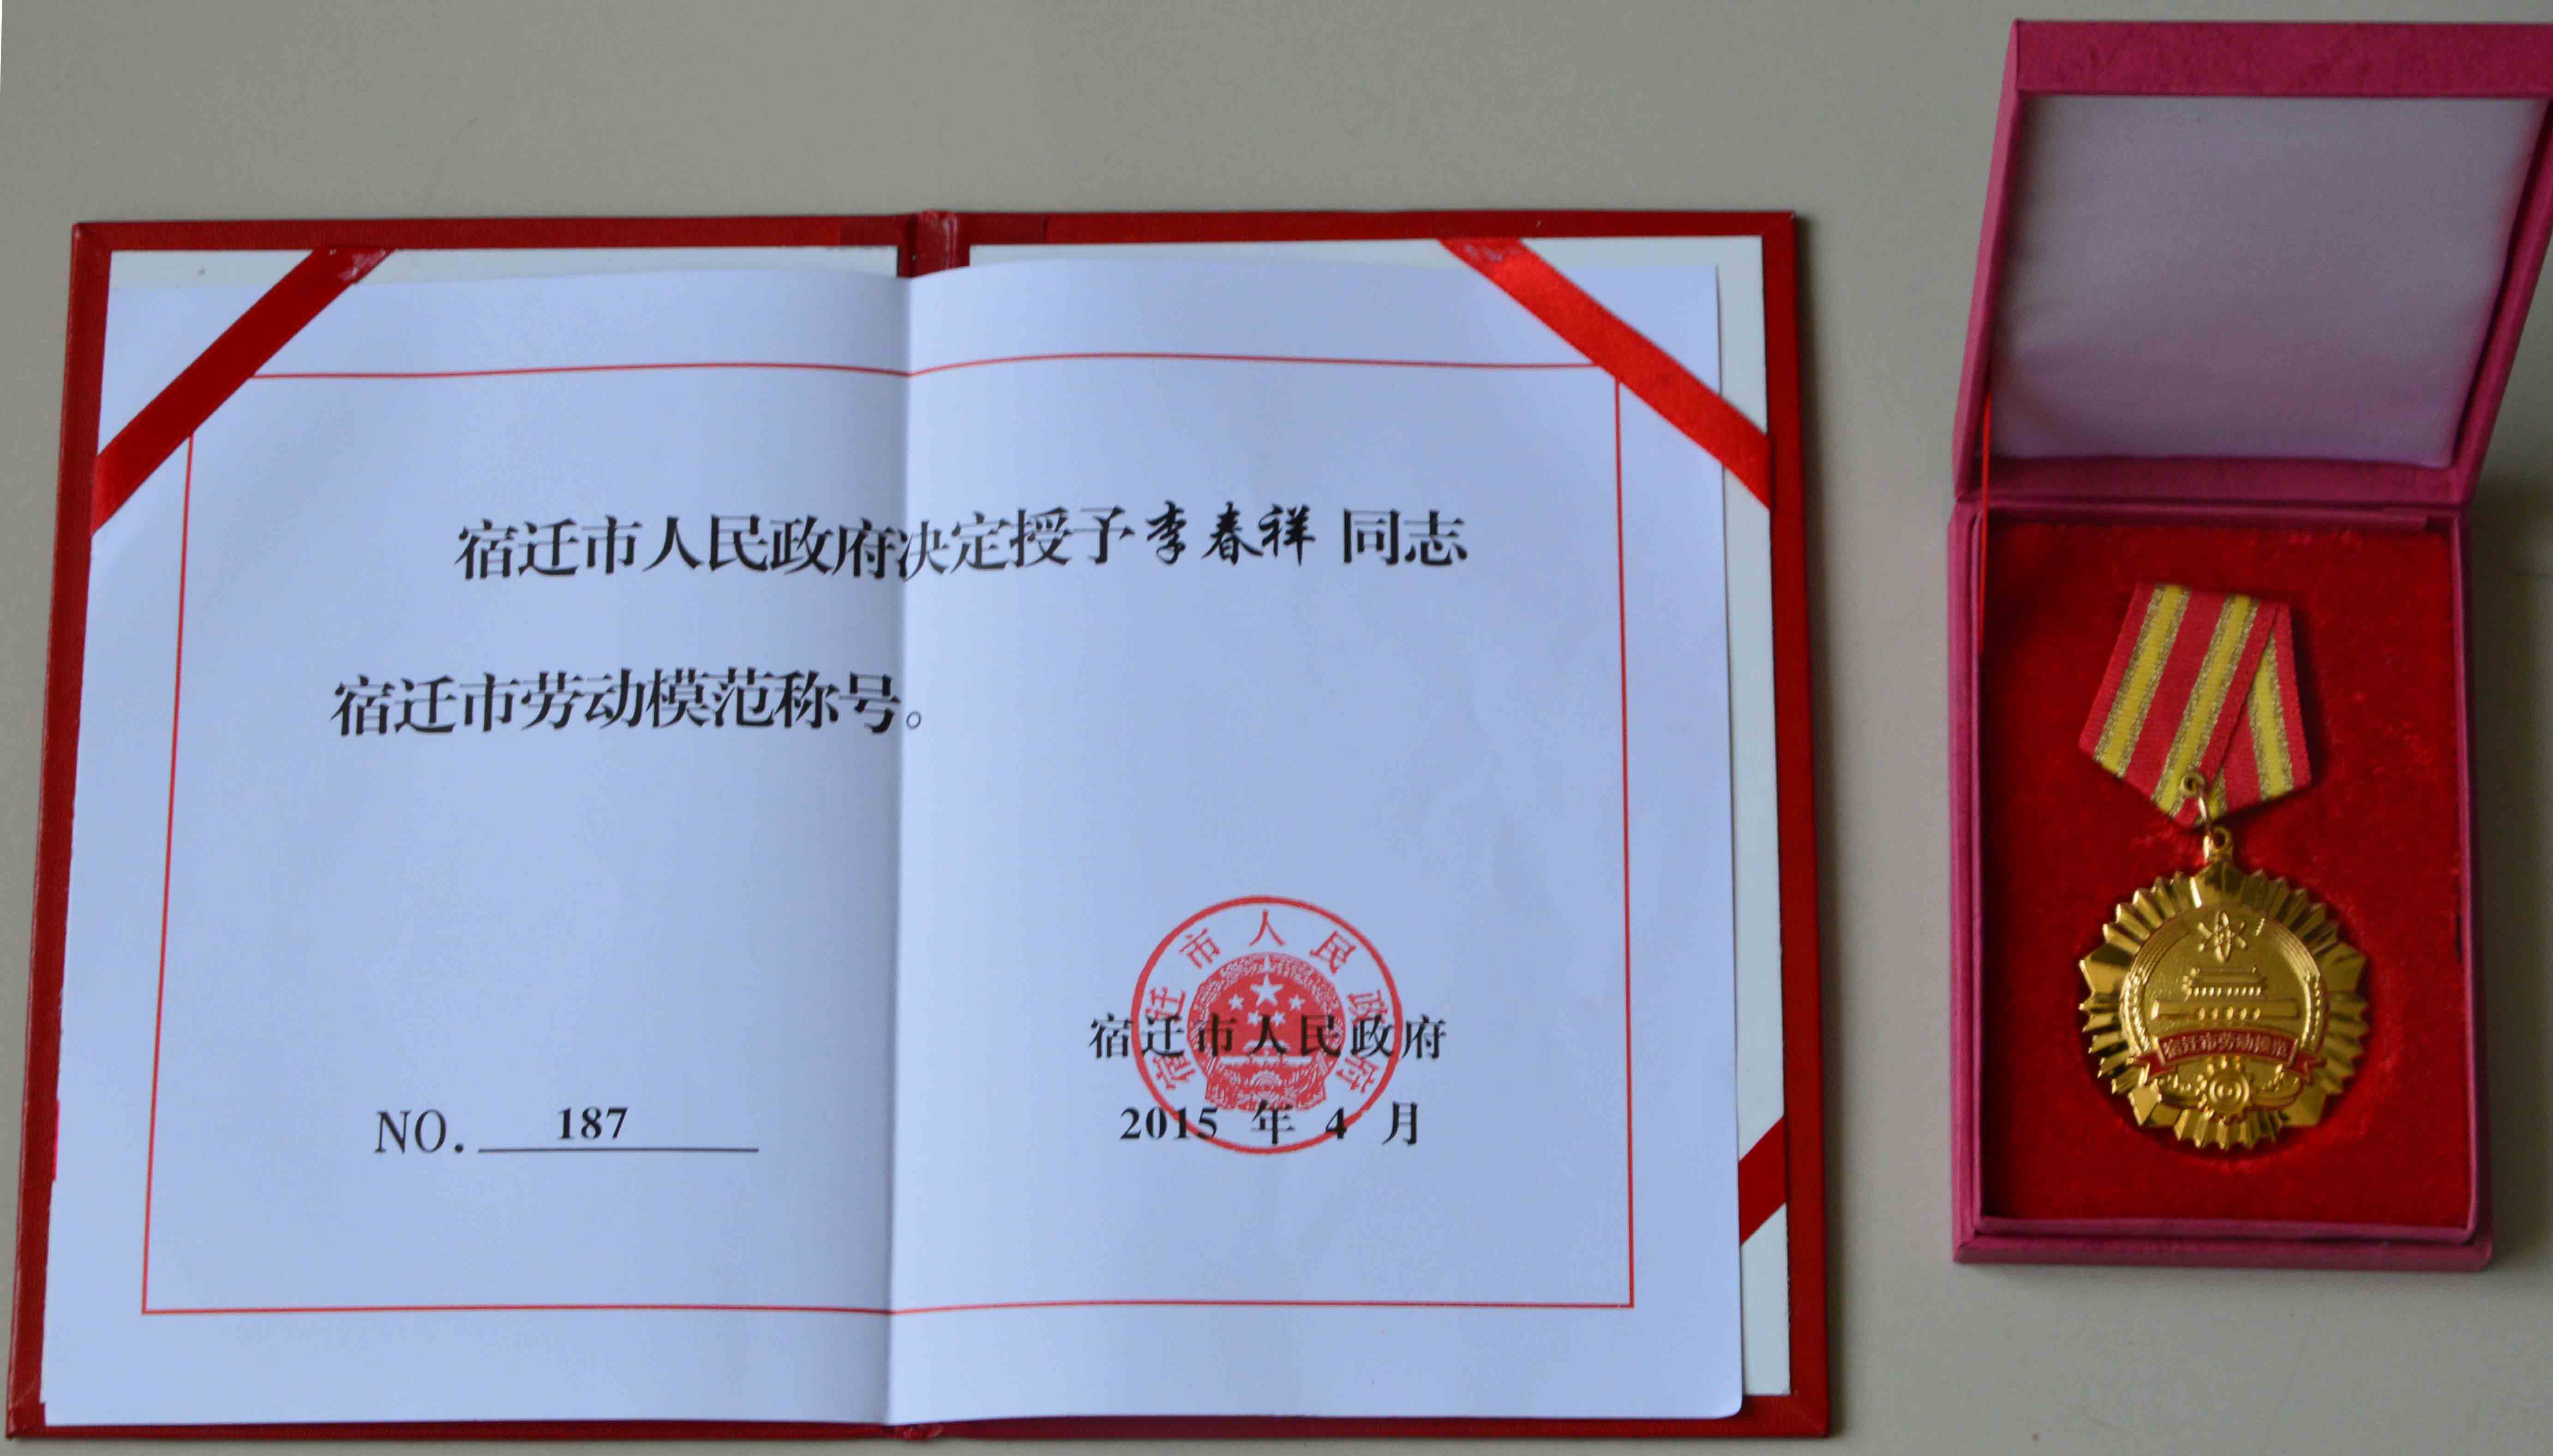 宿迁市人民政府决定授予李春祥 同志
宿迁市劳动模范称号。
宿迁市人民政府
宿迁市人民政府
2015 年 4 月
NO. 187
宿迁市劳动模范